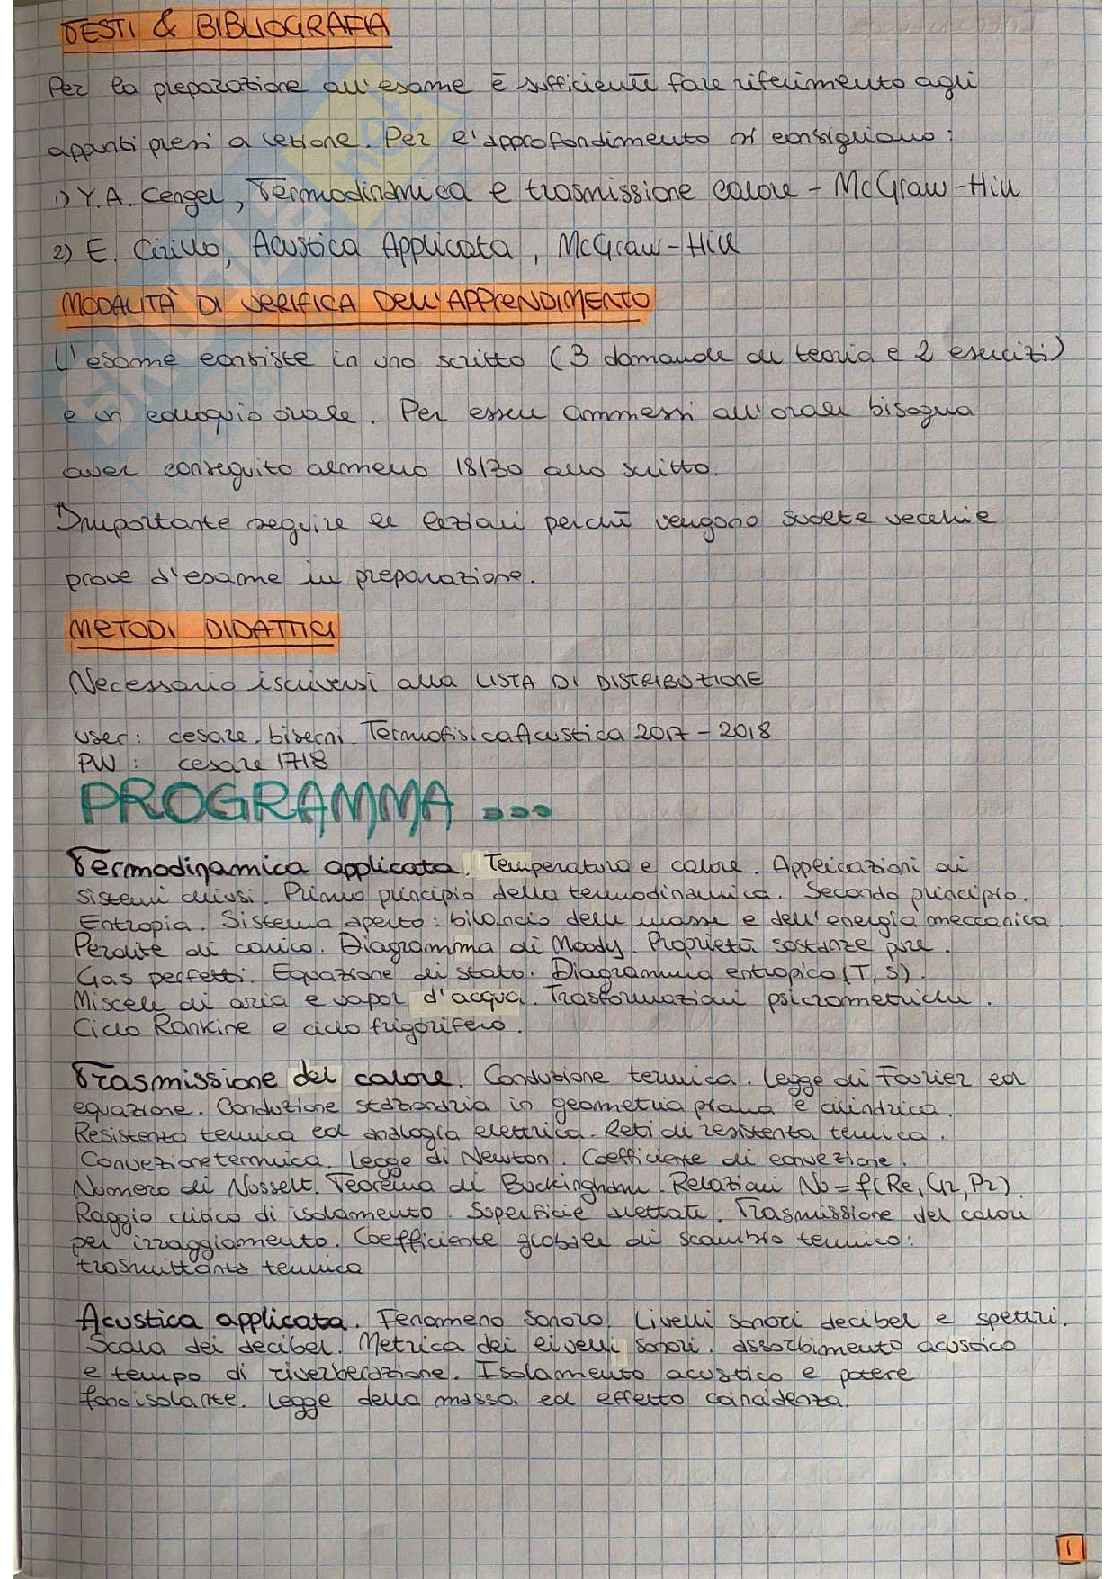 TESTI & BIBLIOGRAFIA
Per la preparazione all'esame è sufficiente fare riferimento agli
appunti presi a lezione. Per l'approfondimento si consigliano:
1) Y.A. Cengel, Termodinamica e trasmissione calore - McGraw-Hill
2) E. Cirillo, Acustica Applicata, McGraw-Hill
MODALITÀ DI VERIFICA DELL'APPRENDIMENTO
L'esame consiste in uno scritto (3 domande di teoria e 2 esercizi)
e un colloquio orale. Per essere ammessi all'orale bisogna
aver conseguito almeno 18/30 allo scritto.
Importante seguire le lezioni perché vengono svolte vecchie
prove d'esame in preparazione.
METODI DIDATTICI
Necessario iscriversi alla LISTA DI DISTRIBUZIONE
user: cesare.biserni.TermofisicaAcustica2017-2018
PW: cesare1718
PROGRAMMA ...
Termodinamica applicata. Temperatura e calore. Applicazioni ai
sistemi chiusi. Primo principio della termodinamica. Secondo principio.
Entropia. Sistema aperto: bilancio delle masse e dell'energia meccanica.
Perdite di carico. Diagramma di Moody. Proprietà sostanze pure.
Gas perfetti. Equazione di stato. Diagramma entropico (T, S).
Miscele di aria e vapor d'acqua. Trasformazioni psicrometriche.
Ciclo Rankine e ciclo frigorifero.
Trasmissione del calore. Conduzione termica. Legge di Fourier ed
equazione. Conduzione stazionaria in geometria piana e cilindrica.
Resistenza termica ed analogia elettrica. Reti di resistenza termica.
Convezione termica. Legge di Newton. Coefficiente di convezione.
Numero di Nusselt. Teorema di Buckingham. Relazioni Nu = f(Re, Gr, Pr).
Raggio critico di isolamento. Superficie alettate. Trasmissione del calore
per irraggiamento. Coefficiente globale di scambio termico:
trasmittanza termica
Acustica applicata. Fenomeno sonoro. Livelli sonori decibel e spettri.
Scala dei decibel. Metrica dei livelli sonori. assorbimento acustico
e tempo di riverberazione. Isolamento acustico e potere
fonoisolante. Legge della massa ed effetto coincidenza.
1